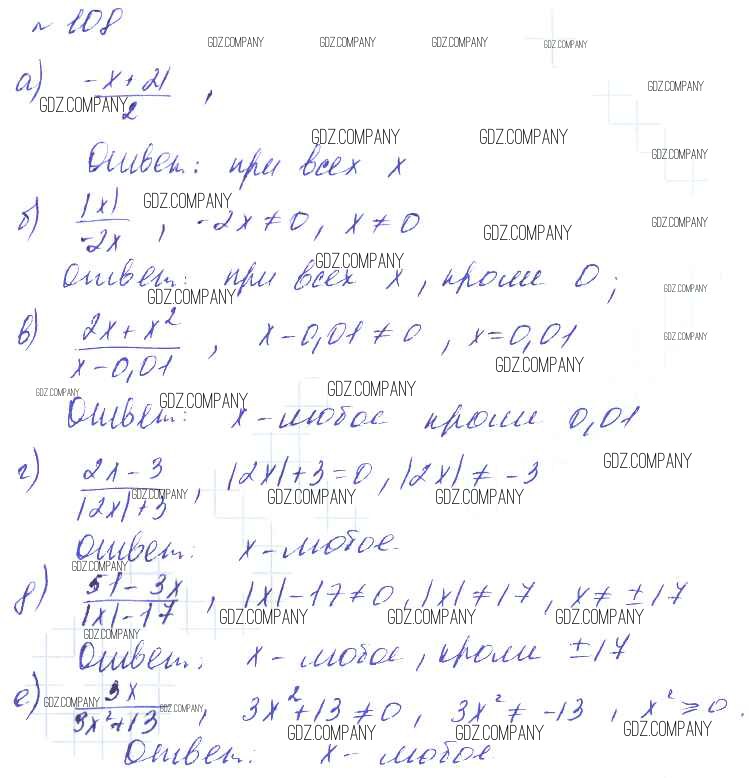 № 108
GDZ.COMPANY GDZ.COMPANY GDZ.COMPANY GDZ.COMPANY
а) (-x + 21)/2 ,
GDZ.COMPANY GDZ.COMPANY
GDZ.COMPANY GDZ.COMPANY
Ответ: при всех x GDZ.COMPANY
б) |x|/(-2x) , -2x ≠ 0, x ≠ 0
GDZ.COMPANY GDZ.COMPANY GDZ.COMPANY
GDZ.COMPANY
Ответ: при всех x, кроме 0;
GDZ.COMPANY GDZ.COMPANY
в) (2x + x²)/(x - 0,01) , x - 0,01 ≠ 0 , x = 0,01
GDZ.COMPANY GDZ.COMPANY
GDZ.COMPANY GDZ.COMPANY GDZ.COMPANY
Ответ: x - любое кроме 0,01
GDZ.COMPANY
г) (2x - 3)/(|2x| + 3) , |2x| + 3 = 0 , |2x| ≠ -3
GDZ.COMPANY GDZ.COMPANY GDZ.COMPANY
Ответ: x - любое.
GDZ.COMPANY
д) (51 - 3x)/(|x| - 17) , |x| - 17 ≠ 0, |x| ≠ 17 , x ≠ ±17
GDZ.COMPANY GDZ.COMPANY GDZ.COMPANY
GDZ.COMPANY
Ответ: x - любое, кроме ±17
е) 3x/(3x² + 13) , 3x² + 13 ≠ 0 , 3x² ≠ -13 , x² ≥ 0.
GDZ.COMPANY GDZ.COMPANY
GDZ.COMPANY GDZ.COMPANY GDZ.COMPANY
Ответ: x - любое.